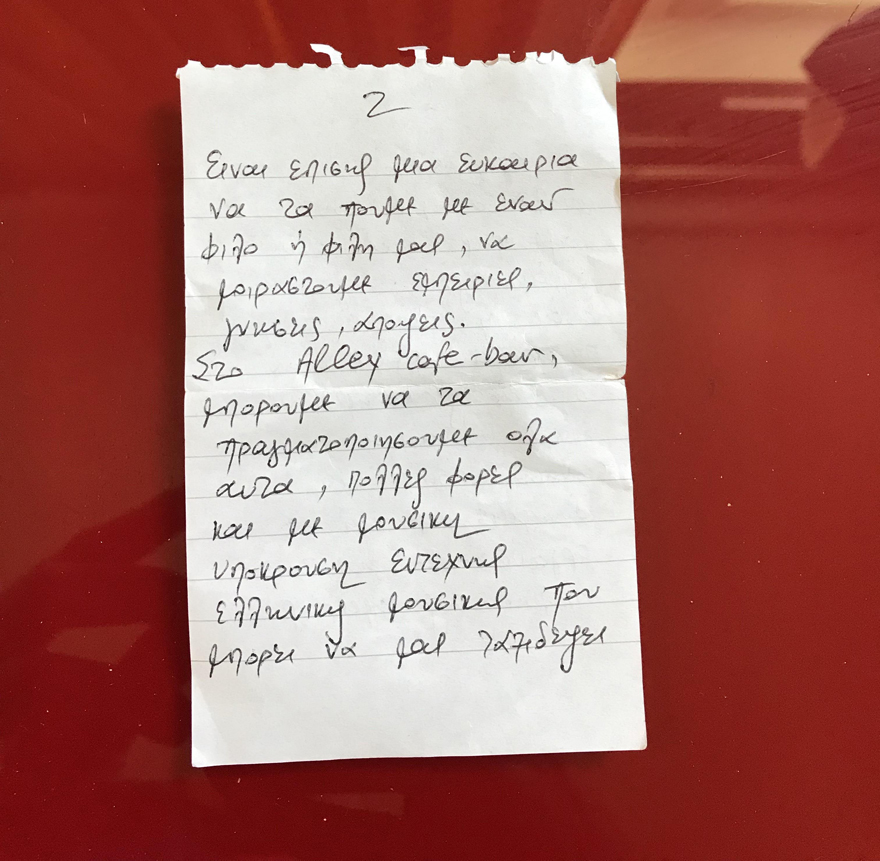 2
Ειναι επισης μια ευκαιρια
να τα πουμε με εναν
φιλο ή φιλη μας, να
μοιραστουμε εμπειριες,
γνωσεις, αποψεις.
Στο Alley cafe-bar,
μπορουμε να τα
πραγματοποιησουμε ολα
αυτα, πολλες φορες
και με μουσικη
υποκρουση εντεχνης
ελληνικης μουσικης που
μπορει να μας ταξιδεψει